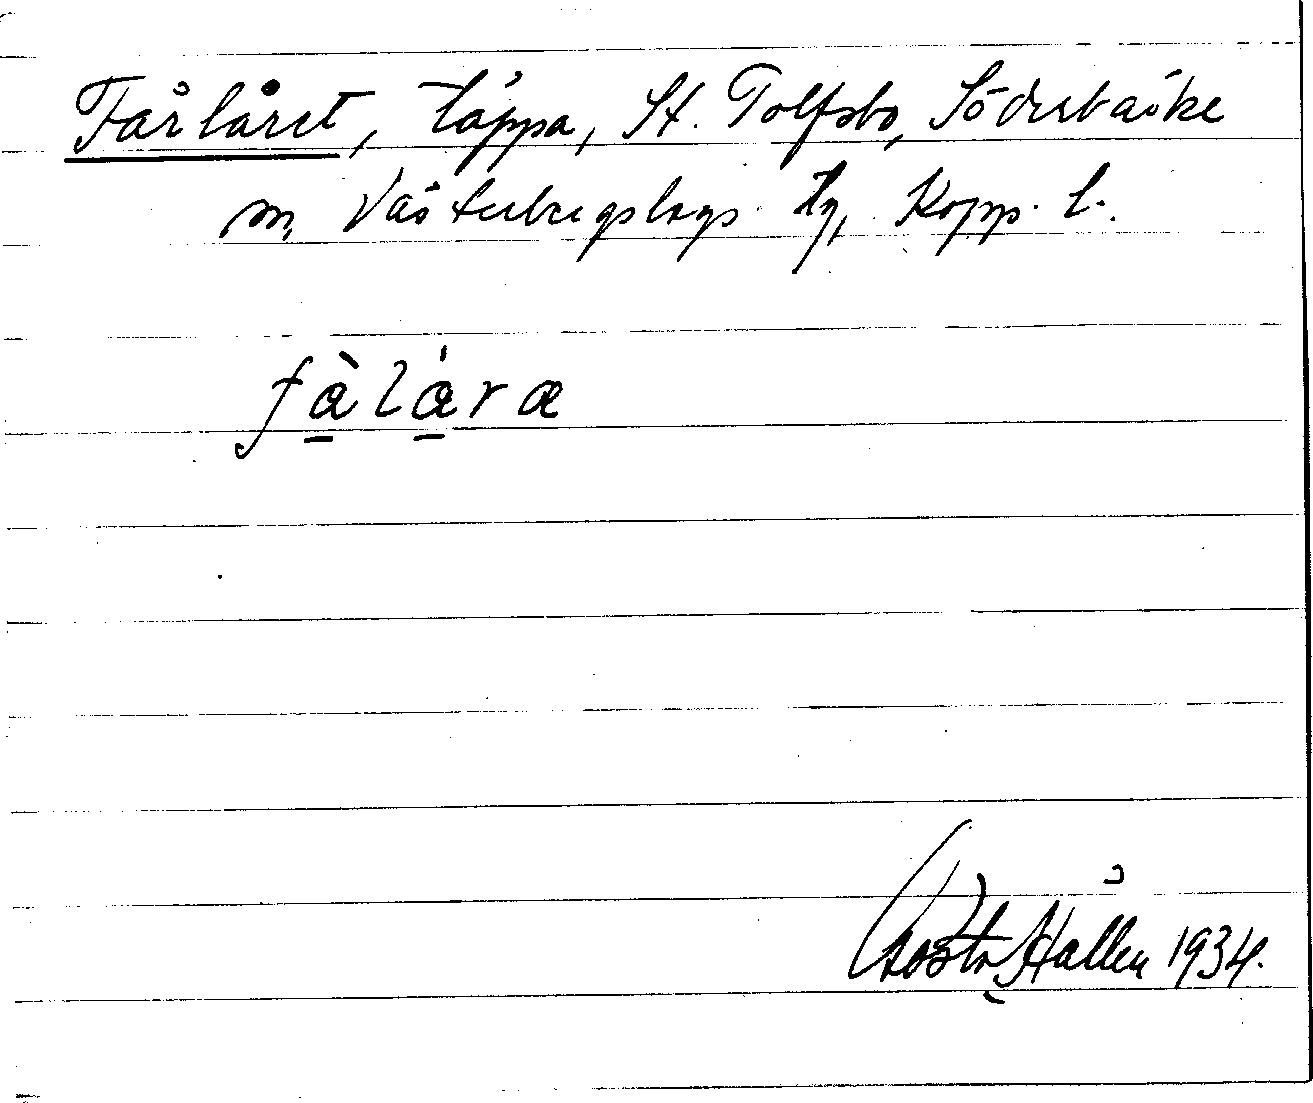 Fårlåret, täppa, St. Tolfsbo, Söderbärke
m, Västerbergslags tg, Kopp. l.
fàlára
Gösta Hållen 1934.